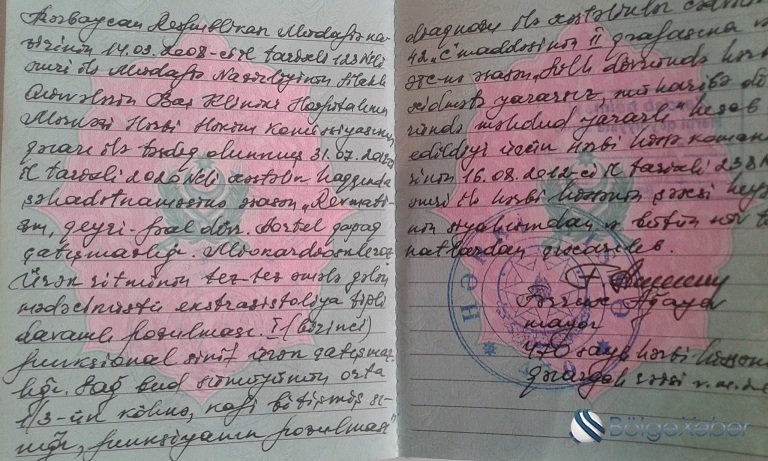 Azərbaycan Respublikası Müdafiə na-
zirinin 14.03.2008-ci il tarixli 123 №li
əmri ilə Müdafiə Nazirliyinin Silahlı
Qüvvələrin Baş Klinik Hospitalının
Mərkəzi Hərbi Həkim komissiyasının
qərarı ilə təsdiq olunmuş 31.07.2012
il tarixli 2020 №li xəstəlik haqqında
şəhadətnaməsinə əsasən "Revmati-
zm, qeyri-fəal dövr. Aortal qapaq
çatışmazlığı. Miokardioskleroz
Ürən ritminin tez-tez əmələ gələn
mədəciküstü ekstrasistoliya tipli
davamlı pozulması. I (birinci)
funksional sinif ürən çatışmaz-
lığı. Sağ bud sümüyünün orta
1/3-ün köhnə, bitişmiş sı-
nığı, funksiyanın pozulması"
diaqnozu ilə xəstəliklər
42 "C" maddəsinin II qrafasına
əsasən "Sülh dövründə hərbi
xidmətə yararsız, müharibə dö
ründə məhdud yararlı" hesab
edildiyi üçün hərbi hissə koman
rinin 16.08.2012-ci il tarixli 238 №
əmri ilə hərbi hissənin şəxsi hey
nin siyahısından və bütün növ tə
natlardan çıxarılıb.
Ağayev
mayor
470 saylı hərbi hissənin
qərargah rəisi
BölgəXəbər